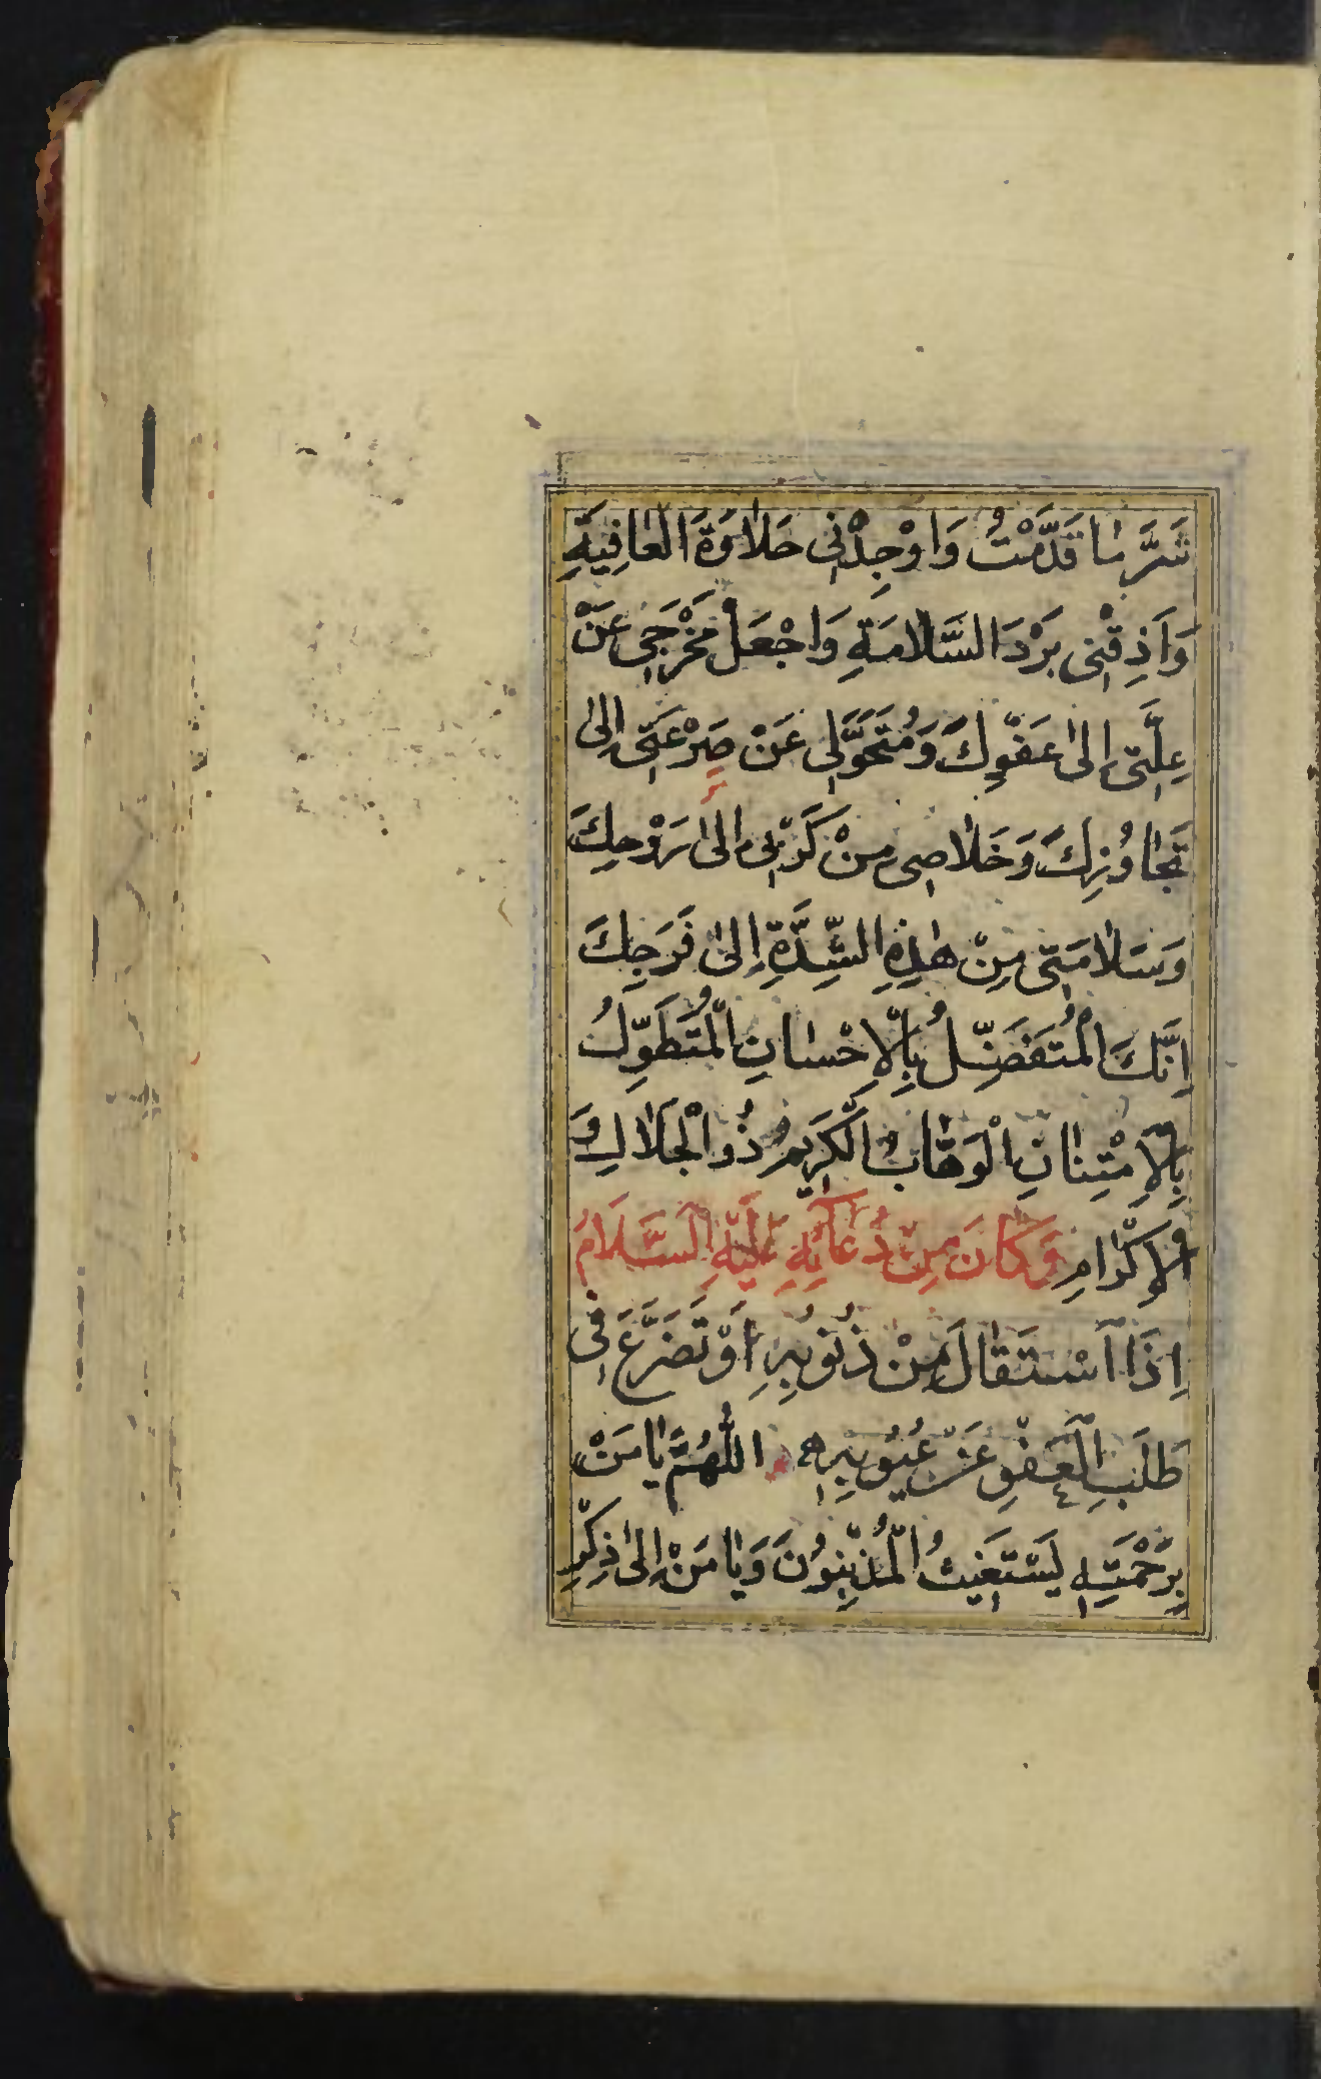 شَرَّ مٰا قَدَّمْتُ وَاَوْجِدْنى حَلاٰوَةَ الْعٰافِيَةِ
وَاَذِقْنى بَرْدَ السَّلاٰمَةِ وَاجْعَلْ مَخْرَجى عَنْ
عِلَّتى اِلىٰ عَفْوِكَ وَمُتَحَوَّلى عَنْ صَِرْعَتى اِلىٰ
تَجٰاوُزِكَ وَخَلاٰصى مِنْ كَرْبى اِلىٰ رَوْحِكَ
وَسَلاٰمَتى مِنْ هٰذِهِ الشِّدَّةِ اِلىٰ فَرَجِكَ
اِنَّكَ الْمُتَفَضِّلُ بِالْاِحْسٰانِ الْمُتَطَوِّلُ
بِالْاِمْتِنٰانِ الْوَهّٰابُ الْكَرِيمُ ذُو الْجَلاٰلِ وَ
الْاِكْرٰامِ وَكَانَ مِنْ دُعَآئِهِ عَلَيْهِ السَّلَامُ
اِذَا اسْتَقٰالَ مِنْ ذُنُوبِهِ اَوْ تَضَرَّعَ فى
طَلَبِ الْعَفْوِ عَنْ عُيُوبِهِ اَللّٰهُمَّ يٰا مَنْ
بِرَحْمَتِهِ يَسْتَغيثُ الْمُذْنِبُونَ وَيٰا مَنْ اِلىٰ ذِكْرِ